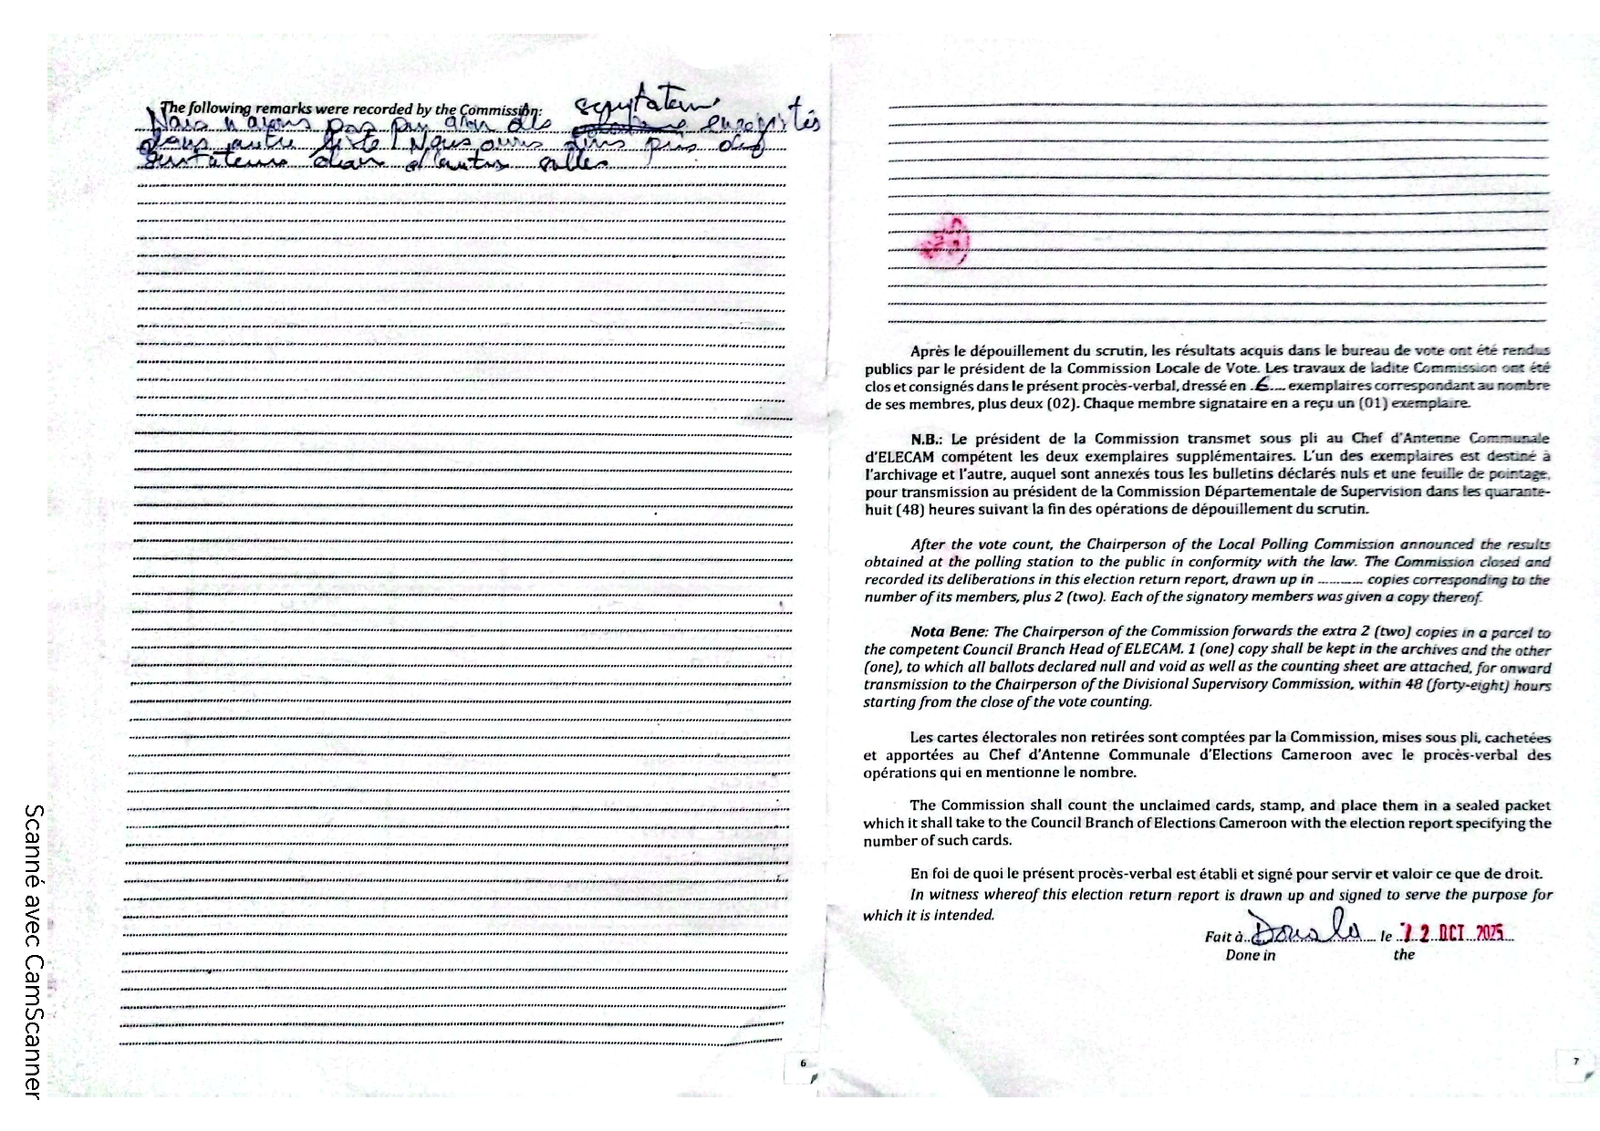 The following remarks were recorded by the Commission:
scrutateur
Nous n'avons pas pu avoir des enregistrés
dans autre liste Nous avons pris des
scrutateurs dans d'autres salles
6
Après le dépouillement du scrutin, les résultats acquis dans le bureau de vote ont été rendus
publics par le président de la Commission Locale de Vote. Les travaux de ladite Commission ont été
clos et consignés dans le présent procès-verbal, dressé en .6.... exemplaires correspondant au nombre
de ses membres, plus deux (02). Chaque membre signataire en a reçu un (01) exemplaire.
N.B.: Le président de la Commission transmet sous pli au Chef d'Antenne Communale
d'ELECAM compétent les deux exemplaires supplémentaires. L'un des exemplaires est destiné à
l'archivage et l'autre, auquel sont annexés tous les bulletins déclarés nuls et une feuille de pointage,
pour transmission au président de la Commission Départementale de Supervision dans les quarante-
huit (48) heures suivant la fin des opérations de dépouillement du scrutin.
After the vote count, the Chairperson of the Local Polling Commission announced the results
obtained at the polling station to the public in conformity with the law. The Commission closed and
recorded its deliberations in this election return report, drawn up in ............ copies corresponding to the
number of its members, plus 2 (two). Each of the signatory members was given a copy thereof.
Nota Bene: The Chairperson of the Commission forwards the extra 2 (two) copies in a parcel to
the competent Council Branch Head of ELECAM. 1 (one) copy shall be kept in the archives and the other
(one), to which all ballots declared null and void as well as the counting sheet are attached, for onward
transmission to the Chairperson of the Divisional Supervisory Commission, within 48 (forty-eight) hours
starting from the close of the vote counting.
Les cartes électorales non retirées sont comptées par la Commission, mises sous pli, cachetées
et apportées au Chef d'Antenne Communale d'Elections Cameroon avec le procès-verbal des
opérations qui en mentionne le nombre.
The Commission shall count the unclaimed cards, stamp, and place them in a sealed packet
which it shall take to the Council Branch of Elections Cameroon with the election report specifying the
number of such cards.
En foi de quoi le présent procès-verbal est établi et signé pour servir et valoir ce que de droit.
In witness whereof this election return report is drawn up and signed to serve the purpose for
which it is intended.
Fait à Douala le 12 OCT. 2025
Done in the
7
Scanné avec CamScanner